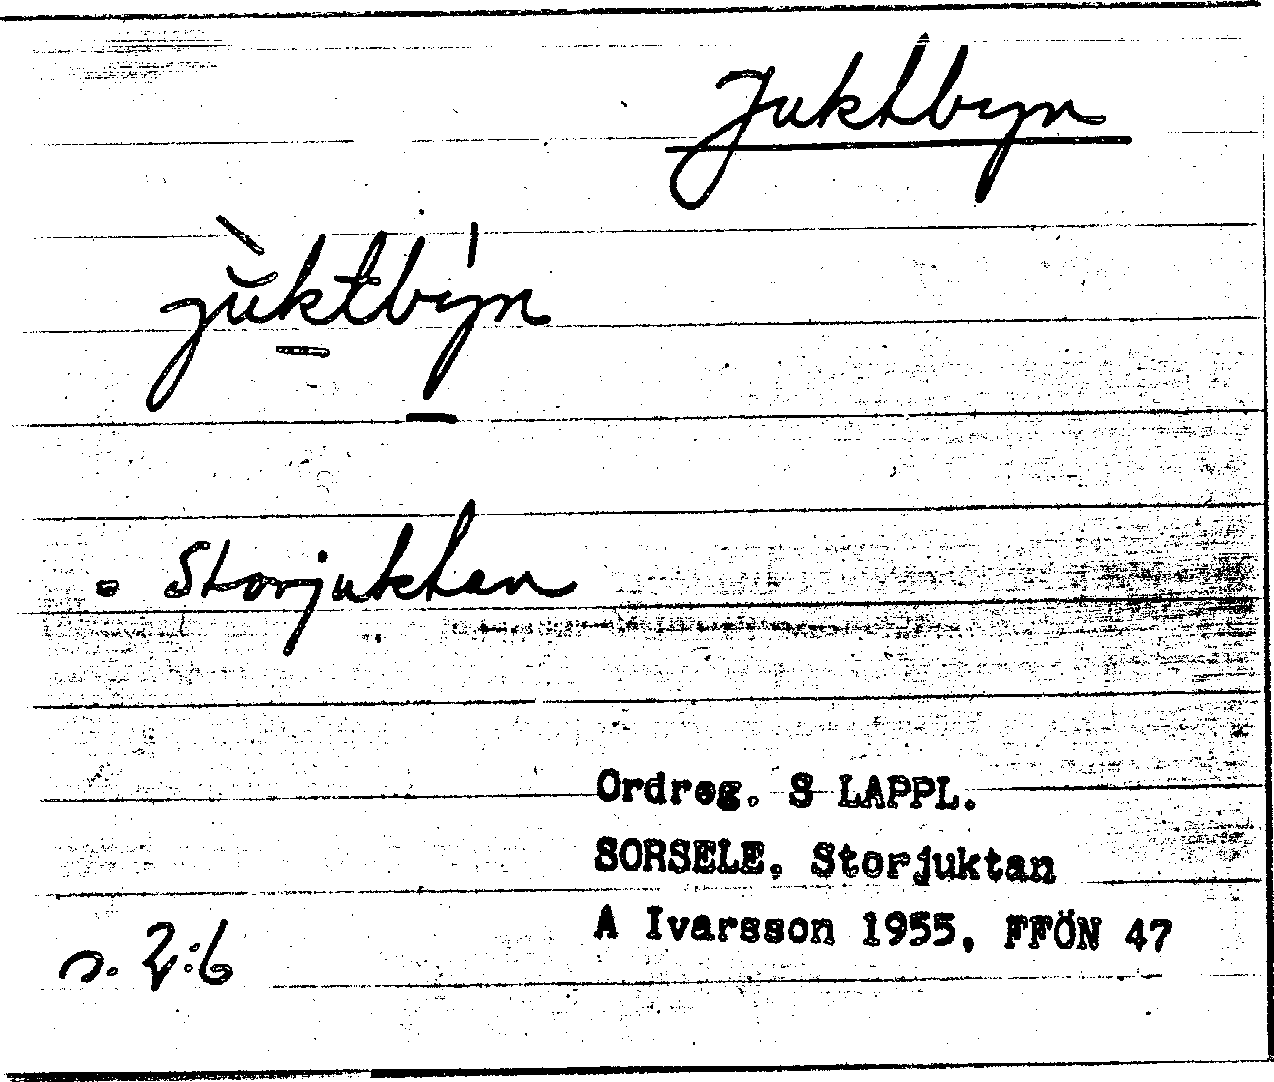 Juktbyn
jùktbýn
= Storjuktan
Ordreg. S LAPPL.
SORSELE. Storjuktan
A Ivarsson 1955, FFÖN 47
s. 2:6